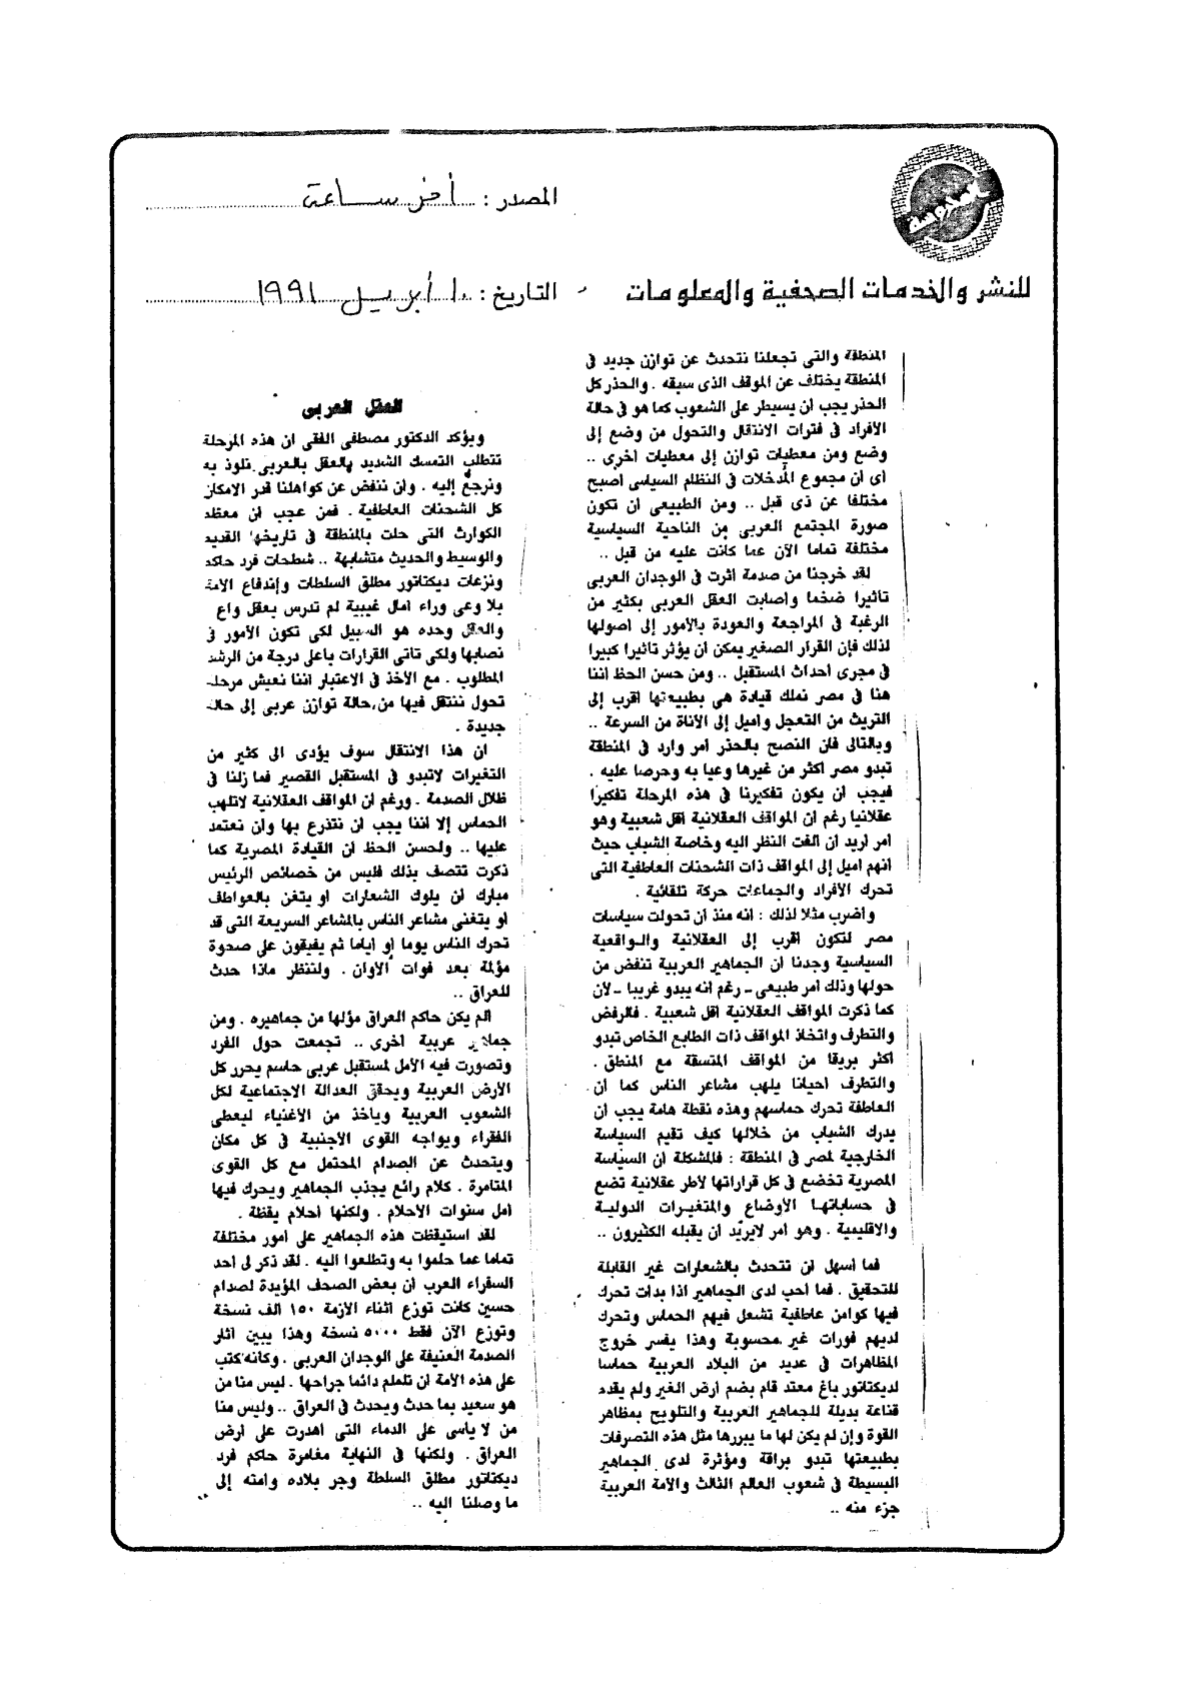 المصدر : أخر ساعة
للنشر والخدمات الصحفية والمعلومات
التاريخ : ١٠ أبريل ١٩٩١
المنطقة والتى تجعلنا نتحدث عن توازن جديد فى
المنطقة يختلف عن الموقف الذى سبقه . والحذر كل
الحذر يجب ان يسيطر على الشعوب كما هو فى حالة
الأفراد فى فترات الانتقال والتحول من وضع إلى
وضع ومن معطيات توازن إلى معطيات اخرى ..
اى ان مجموع المدخلات فى النظام السياسى اصبح
مختلفا عن ذى قبل .. ومن الطبيعى ان تكون
صورة المجتمع العربى من الناحية السياسية
مختلفة تماما الآن عما كانت عليه من قبل ..
لقد خرجنا من صدمة اثرت فى الوجدان العربى
تاثيرا ضخما واصابت العقل العربى بكثير من
الرغبة فى المراجعة والعودة بالأمور إلى اصولها
لذلك فإن القرار الصغير يمكن ان يؤثر تاثيرا كبيرا
فى مجرى احداث المستقبل .. ومن حسن الحظ اننا
هنا فى مصر نملك قيادة هى بطبيعتها اقرب إلى
التريث من التعجل واميل إلى الأناة من السرعة ..
وبالتالى فان النصح بالحذر امر وارد فى المنطقة
تبدو مصر اكثر من غيرها وعيا به وحرصا عليه .
فيجب ان يكون تفكيرنا فى هذه المرحلة تفكيرا
عقلانيا رغم ان المواقف العقلانية اقل شعبية وهو
امر اريد ان الفت النظر اليه وخاصة الشباب حيث
انهم اميل إلى المواقف ذات الشحنات العاطفية التى
تحرك الأفراد والجماعات حركة تلقائية .
واضرب مثلا لذلك : انه منذ ان تحولت سياسات
مصر لتكون اقرب إلى العقلانية والواقعية
السياسية وجدنا ان الجماهير العربية تنفض من
حولها وذلك امر طبيعى - رغم انه يبدو غريبا - لأن
كما ذكرت المواقف العقلانية اقل شعبية . فالرفض
والتطرف واتخاذ المواقف ذات الطابع الخاص تبدو
اكثر بريقا من المواقف المتسقة مع المنطق .
والتطرف احيانا يلهب مشاعر الناس كما ان
العاطفة تحرك حماسهم وهذه نقطة هامة يجب ان
يدرك الشباب من خلالها كيف تقيم السياسة
الخارجية لمصر فى المنطقة : فالمشكلة ان السياسة
المصرية تخضع فى كل قراراتها لأطر عقلانية تضع
فى حساباتها الأوضاع والمتغيرات الدولية
والاقليمية . وهو امر لايريد ان يقبله الكثيرون ..
فما اسهل ان نتحدث بالشعارات غير القابلة
للتحقيق . فما احب لدى الجماهير اذا بدات تحرك
فيها كوامن عاطفية تشعل فيهم الحماس وتحرك
لديهم فورات غير محسوبة وهذا يفسر خروج
المظاهرات فى عديد من البلاد العربية حماسا
لديكتاتور باغ معتد قام بضم ارض الغير ولم يقدم
قناعة بديلة للجماهير العربية والتلويح بمظاهر
القوة وإن لم يكن لها ما يبررها مثل هذه التصرفات
بطبيعتها تبدو براقة ومؤثرة لدى الجماهير
البسيطة فى شعوب العالم الثالث والأمة العربية
جزء منه ..
العقل العربى
ويؤكد الدكتور مصطفى الفقى ان هذه المرحلة
تتطلب التمسك الشديد بالعقل بالعربى نلوذ به
ونرجع إليه . وان ننفض عن كواهلنا قدر الامكان
كل الشحنات العاطفية . فمن عجب ان معظم
الكوارث التى حلت بالمنطقة فى تاريخها القديم
والوسيط والحديث متشابهة .. شطحات فرد حاكم
ونزعات ديكتاتور مطلق السلطات وإندفاع الامة
بلا وعى وراء امال غيبية لم تدرس بعقل واع
والعقل وحده هو السبيل لكى تكون الأمور فى
نصابها ولكى تاتى القرارات باعلى درجة من الرشد
المطلوب . مع الأخذ فى الاعتبار اننا نعيش مرحلة
تحول ننتقل فيها من حالة توازن عربى إلى حالة
جديدة .
ان هذا الانتقال سوف يؤدى الى كثير من
التغيرات لاتبدو فى المستقبل القصير فما زلنا فى
ظلال الصدمة . ورغم ان المواقف العقلانية لاتلهب
الحماس إلا اننا يجب ان نتذرع بها وان نعتمد
عليها .. ولحسن الحظ ان القيادة المصرية كما
ذكرت تتصف بذلك فليس من خصائص الرئيس
مبارك ان يلوك الشعارات او يتغن بالعواطف
او يتغنى مشاعر الناس بالمشاعر السريعة التى قد
تحرك الناس يوما او اياما ثم يفيقون على صحوة
مؤلمة بعد فوات الأوان . ولننظر ماذا حدث
للعراق ..
الم يكن حاكم العراق مؤلها من جماهيره . ومن
جماهير عربية اخرى .. تجمعت حول الفرد
وتصورت فيه الأمل لمستقبل عربى حاسم يحرر كل
الأرض العربية ويحقق العدالة الاجتماعية لكل
الشعوب العربية وياخذ من الأغنياء ليعطى
الفقراء ويواجه القوى الأجنبية فى كل مكان
ويتحدث عن الصدام المحتمل مع كل القوى
المتامرة . كلام رائع يجذب الجماهير ويحرك فيها
امل سنوات الاحلام . ولكنها احلام يقظة .
لقد استيقظت هذه الجماهير على امور مختلفة
تماما عما حلموا به وتطلعوا اليه . لقد ذكر لى احد
السفراء العرب ان بعض الصحف المؤيدة لصدام
حسين كانت توزع اثناء الازمة ١٥٠ الف نسخة
وتوزع الآن فقط ٥٠٠٠ نسخة وهذا يبين اثار
الصدمة العنيفة على الوجدان العربى . وكانه كتب
على هذه الأمة ان تلملم دائما جراحها . ليس منا من
هو سعيد بما حدث ويحدث فى العراق .. وليس منا
من لا ياسى على الدماء التى اهدرت على ارض
العراق . ولكنها فى النهاية مغامرة حاكم فرد
ديكتاتور مطلق السلطة وجر بلاده وامته إلى
ما وصلنا اليه ..